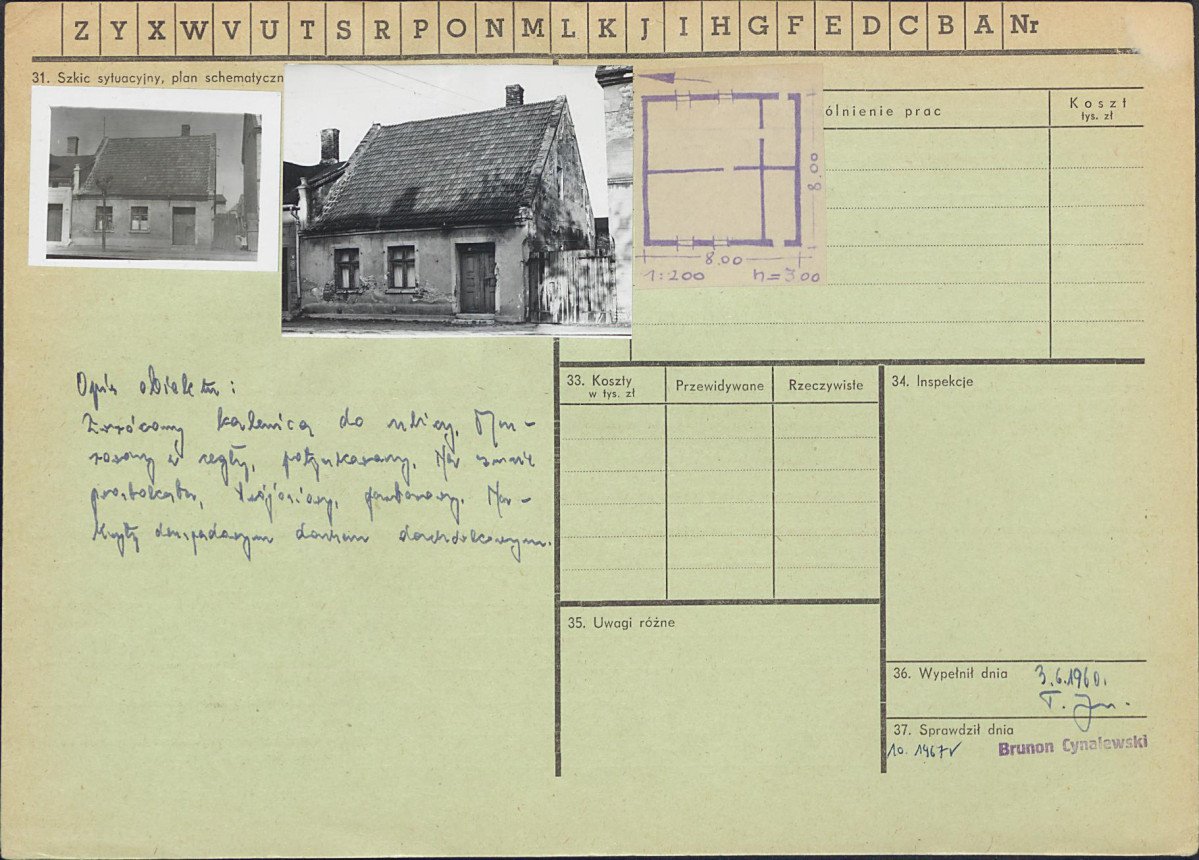 Z Y X W V U T S R P O N M L K J I H G F E D C B A Nr
31. Szkic sytuacyjny, plan schematyczn
ólnienie prac
Koszt
tys. zł
8.00
8.00
1:200 h=3.00
Opis obiektu:
Zwrócony kalenicą do ulicy. Mu-
rowany z cegły, potynkowany. Na rzucie
prostokąta, trójosiowy, parterowy. Na-
kryty dwuspadowym dachem dachówkowym.
33. Koszty
w tys. zł
Przewidywane
Rzeczywiste
34. Inspekcje
35. Uwagi różne
36. Wypełnił dnia 3.6.1960.
T.
37. Sprawdził dnia
10. 1967
Brunon Cynalewski